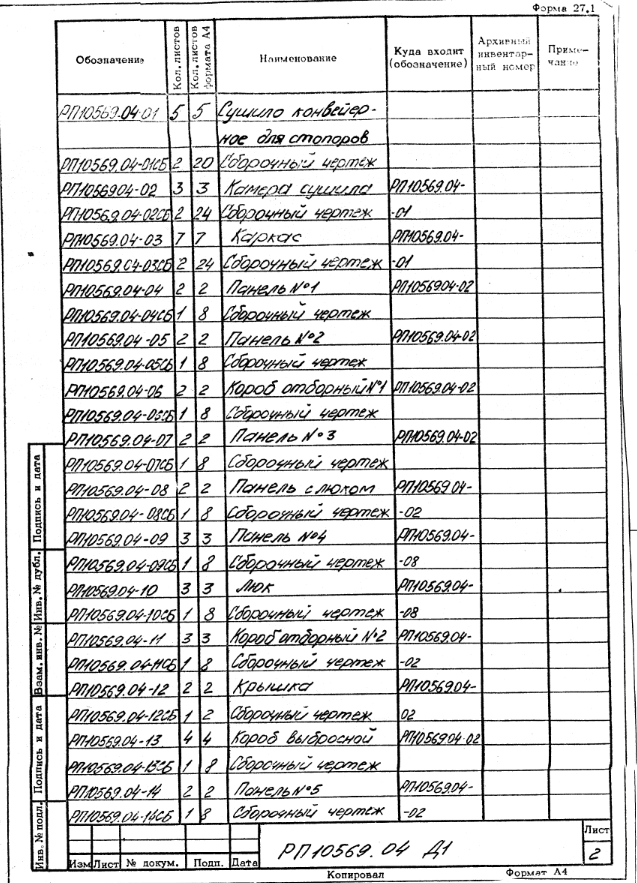 Форма 27.1
Обозначение Кол. листов Кол. листов формата А4 Наименование Куда входит (обозначение) Архивный инвентар-ный номер Приме-чание
РП10569.04-01 5 5 Сушило конвейер-
ное для стопоров
РП10569.04-01СБ 2 20 Сборочный чертеж
РП10569.04-02 3 3 Камера сушила РП10569.04-
РП10569.04-02СБ 2 24 Сборочный чертеж -01
РП10569.04-03 7 7 Каркас РП10569.04-
РП10569.04-03СБ 2 24 Сборочный чертеж -01
РП10569.04-04 2 2 Панель №1 РП10569.04-02
РП10569.04-04СБ 1 8 Сборочный чертеж
РП10569.04-05 2 2 Панель №2 РП10569.04-02
РП10569.04-05СБ 1 8 Сборочный чертеж
РП10569.04-06 2 2 Короб отборный №1 РП10569.04-02
РП10569.04-06СБ 1 8 Сборочный чертеж
РП10569.04-07 2 2 Панель №3 РП10569.04-02
РП10569.04-07СБ 1 8 Сборочный чертеж
РП10569.04-08 2 2 Панель с люком РП10569.04-
РП10569.04-08СБ 1 8 Сборочный чертеж -02
РП10569.04-09 3 3 Панель №4 РП10569.04-
РП10569.04-09СБ 1 8 Сборочный чертеж -08
РП10569.04-10 3 3 Люк РП10569.04-
РП10569.04-10СБ 1 8 Сборочный чертеж -08
РП10569.04-11 3 3 Короб отборный №2 РП10569.04-
РП10569.04-11СБ 1 8 Сборочный чертеж -02
РП10569.04-12 2 2 Крышка РП10569.04-
РП10569.04-12СБ 1 2 Сборочный чертеж 02
РП10569.04-13 4 4 Короб выбросной РП10569.04-02
РП10569.04-13СБ 1 8 Сборочный чертеж
РП10569.04-14 2 2 Панель №5 РП10569.04-
РП10569.04-14СБ 1 8 Сборочный чертеж -02
Инв. № подл. Подпись и дата Взам. инв. № Инв. № дубл. Подпись и дата
Изм Лист № докум. Подп. Дата
РП10569.04 Д1
Лист
2
Копировал Формат А4